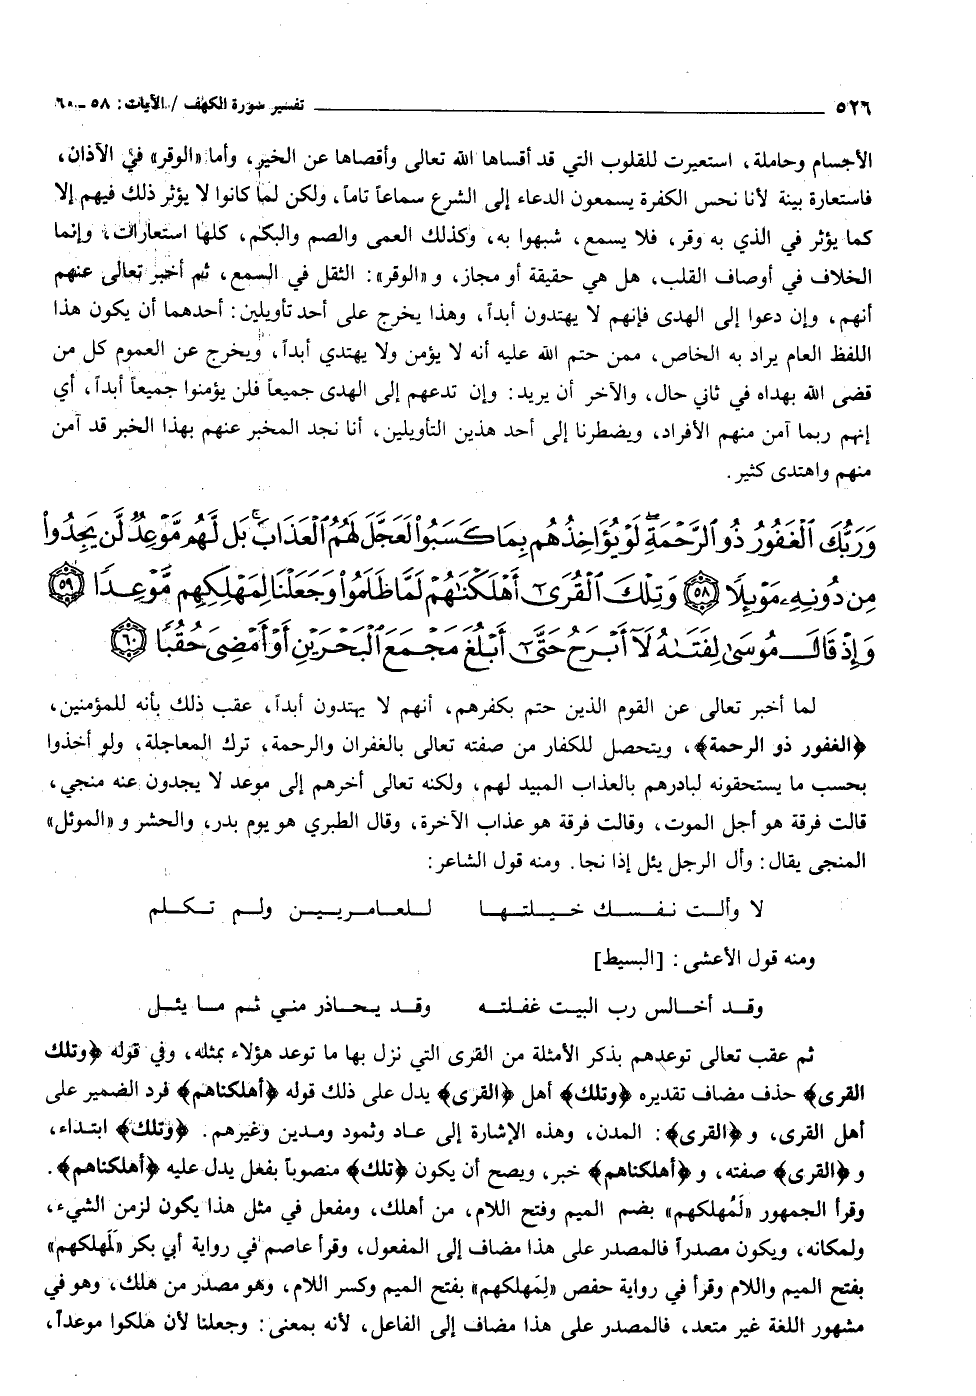 ٥٢٦ تفسير سورة الكهف / الآيات: ٥٨ ـ ٦٠
الأجسام وحاملة، استعيرت للقلوب التي قد أقساها الله تعالى وأقصاها عن الخير، وأما «الوقر» في الآذان،
فاستعارة بينة لأنا نحس الكفرة يسمعون الدعاء إلى الشرع سماعاً تاماً، ولكن لما كانوا لا يؤثر ذلك فيهم إلا
كما يؤثر في الذي به وقر، فلا يسمع، شبهوا به، وكذلك العمى والصم والبكم، كلها استعارات، وإنما
الخلاف في أوصاف القلب، هل هي حقيقة أو مجاز، و «الوقر»: الثقل في السمع، ثم أخبر تعالى عنهم
أنهم، وإن دعوا إلى الهدى فإنهم لا يهتدون أبداً، وهذا يخرج على أحد تأويلين: أحدهما أن يكون هذا
اللفظ العام يراد به الخاص، ممن حتم الله عليه أنه لا يؤمن ولا يهتدي أبداً، ويخرج عن العموم كل من
قضى الله بهداه في ثاني حال، والآخر أن يريد: وإن تدعهم إلى الهدى جميعاً فلن يؤمنوا جميعاً أبداً، أي
إنهم ربما آمن منهم الأفراد، ويضطرنا إلى أحد هذين التأويلين، أنا نجد المخبر عنهم بهذا الخبر قد آمن
منهم واهتدى كثير.
وَرَبُّكَ ٱلْغَفُورُ ذُو ٱلرَّحْمَةِ ۖ لَوْ يُؤَاخِذُهُم بِمَا كَسَبُوا۟ لَعَجَّلَ لَهُمُ ٱلْعَذَابَ ۚ بَل لَّهُم مَّوْعِدٌ لَّن يَجِدُوا۟
مِن دُونِهِۦ مَوْئِلًا ٥٨ وَتِلْكَ ٱلْقُرَىٰٓ أَهْلَكْنَٰهُمْ لَمَّا ظَلَمُوا۟ وَجَعَلْنَا لِمَهْلِكِهِم مَّوْعِدًا ٥٩
وَإِذْ قَالَ مُوسَىٰ لِفَتَىٰهُ لَآ أَبْرَحُ حَتَّىٰٓ أَبْلُغَ مَجْمَعَ ٱلْبَحْرَيْنِ أَوْ أَمْضِىَ حُقُبًا ٦٠
لما أخبر تعالى عن القوم الذين حتم بكفرهم، أنهم لا يهتدون أبداً، عقب ذلك بأنه للمؤمنين،
﴿الغفور ذو الرحمة﴾، ويتحصل للكفار من صفته تعالى بالغفران والرحمة، ترك المعاجلة، ولو أخذوا
بحسب ما يستحقونه لبادرهم بالعذاب المبيد لهم، ولكنه تعالى أخرهم إلى موعد لا يجدون عنه منجي،
قالت فرقة هو أجل الموت، وقالت فرقة هو عذاب الآخرة، وقال الطبري هو يوم بدر، والحشر و «الموئل»
المنجى يقال: وأل الرجل يئل إذا نجا. ومنه قول الشاعر:
لا وألت نفسك خيلتها للعامريين ولم تكلم
ومنه قول الأعشى: [البسيط]
وقد أخالس رب البيت غفلته وقد يحاذر مني ثم ما يئل
ثم عقب تعالى توعدهم بذكر الأمثلة من القرى التي نزل بها ما توعد هؤلاء بمثله، وفي قوله ﴿وتلك
القرى﴾ حذف مضاف تقديره ﴿وتلك﴾ أهل ﴿القرى﴾ يدل على ذلك قوله ﴿أهلكناهم﴾ فرد الضمير على
أهل القرى، و ﴿القرى﴾: المدن، وهذه الإشارة إلى عاد وثمود ومدين وغيرهم. ﴿وتلك﴾ ابتداء،
و ﴿القرى﴾ صفته، و ﴿أهلكناهم﴾ خبر، ويصح أن يكون ﴿تلك﴾ منصوباً بفعل يدل عليه ﴿أهلكناهم﴾.
وقرأ الجمهور «لَمُهلكهم» بضم الميم وفتح اللام، من أهلك، ومفعل في مثل هذا يكون لزمن الشيء،
ولمكانه، ويكون مصدراً فالمصدر على هذا مضاف إلى المفعول، وقرأ عاصم في رواية أبي بكر «لَمَهلكهم»
بفتح الميم واللام وقرأ في رواية حفص «لِمَهلكهم» بفتح الميم وكسر اللام، وهو مصدر من هلك، وهو في
مشهور اللغة غير متعد، فالمصدر على هذا مضاف إلى الفاعل، لأنه بمعنى: وجعلنا لأن هلكوا موعداً،